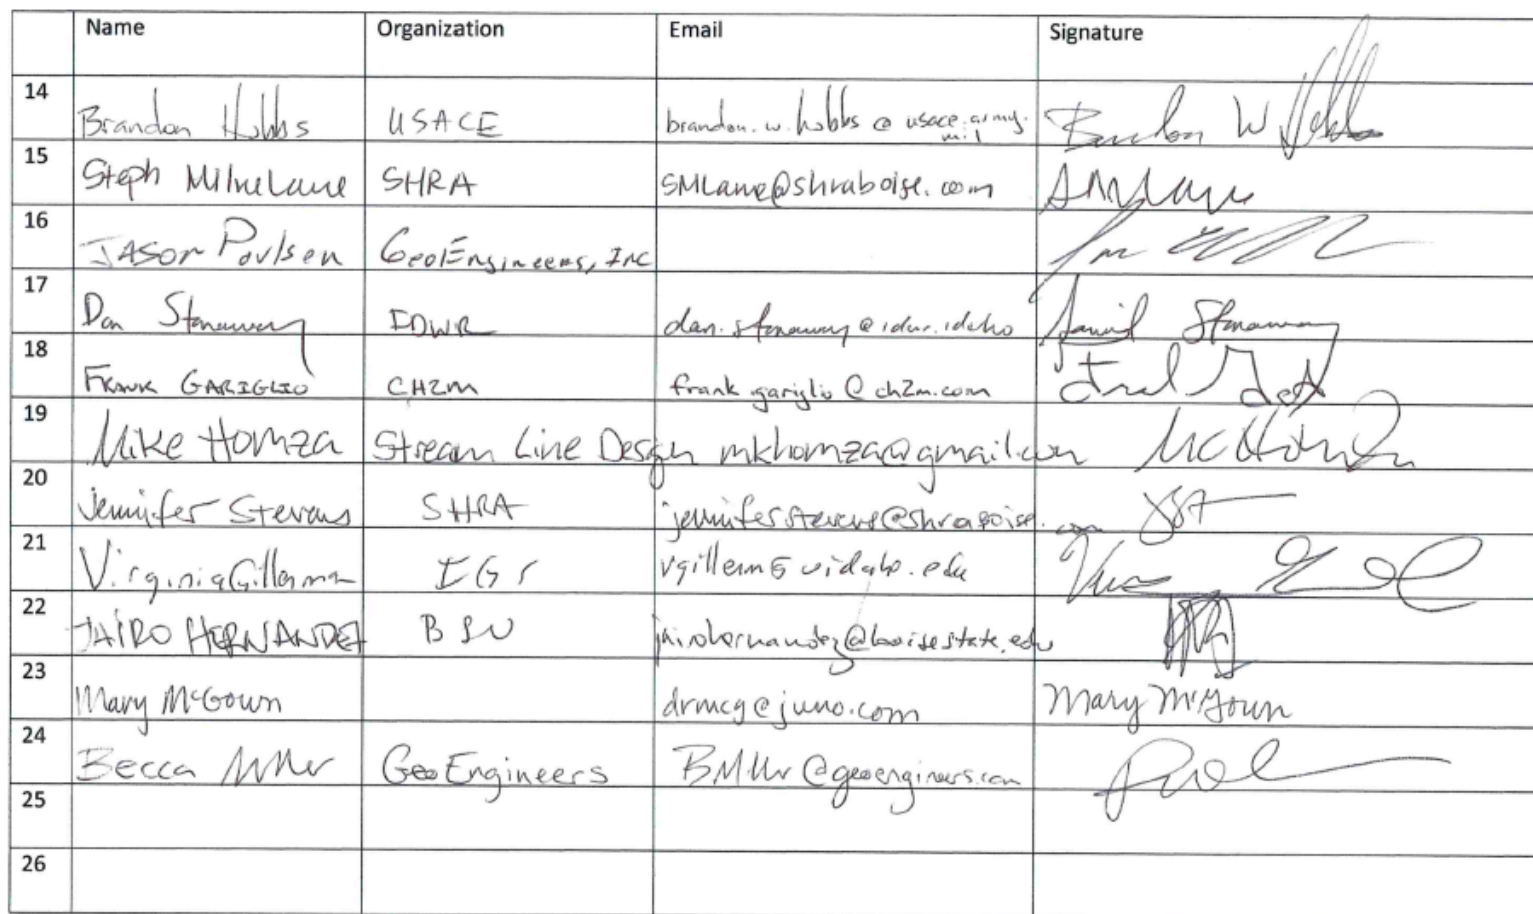 Name Organization Email Signature
14 Brandon Hobbs USACE brandon.w.hobbs@usace.army.mil Brandon W Hobbs
15 Steph Milnelane SHRA SMLane@shraboise.com
16 Jason Poulsen GeoEngineers, Inc
17 Dan Stanaway IDWR dan.stanaway@idwr.idaho Daniel Stanaway
18 Frank GARIGLIO CH2M frank.gariglio@ch2m.com
19 Mike Homza Stream Line Design mkhomza@gmail.com
20 Jennifer Stevens SHRA jenniferstevens@shraboise.com
21 Virginia Gillerman IGS
22 JAIRO HERNANDEZ BSU jairohernandez@boisestate.edu
23 Mary McGown drmcg@juno.com Mary McGown
24 Becca Miller GeoEngineers
25
26